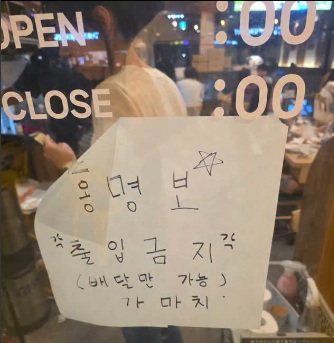 OPEN :00
CLOSE :00
홍명보
각출입금지각
(배달만 가능)
가마치